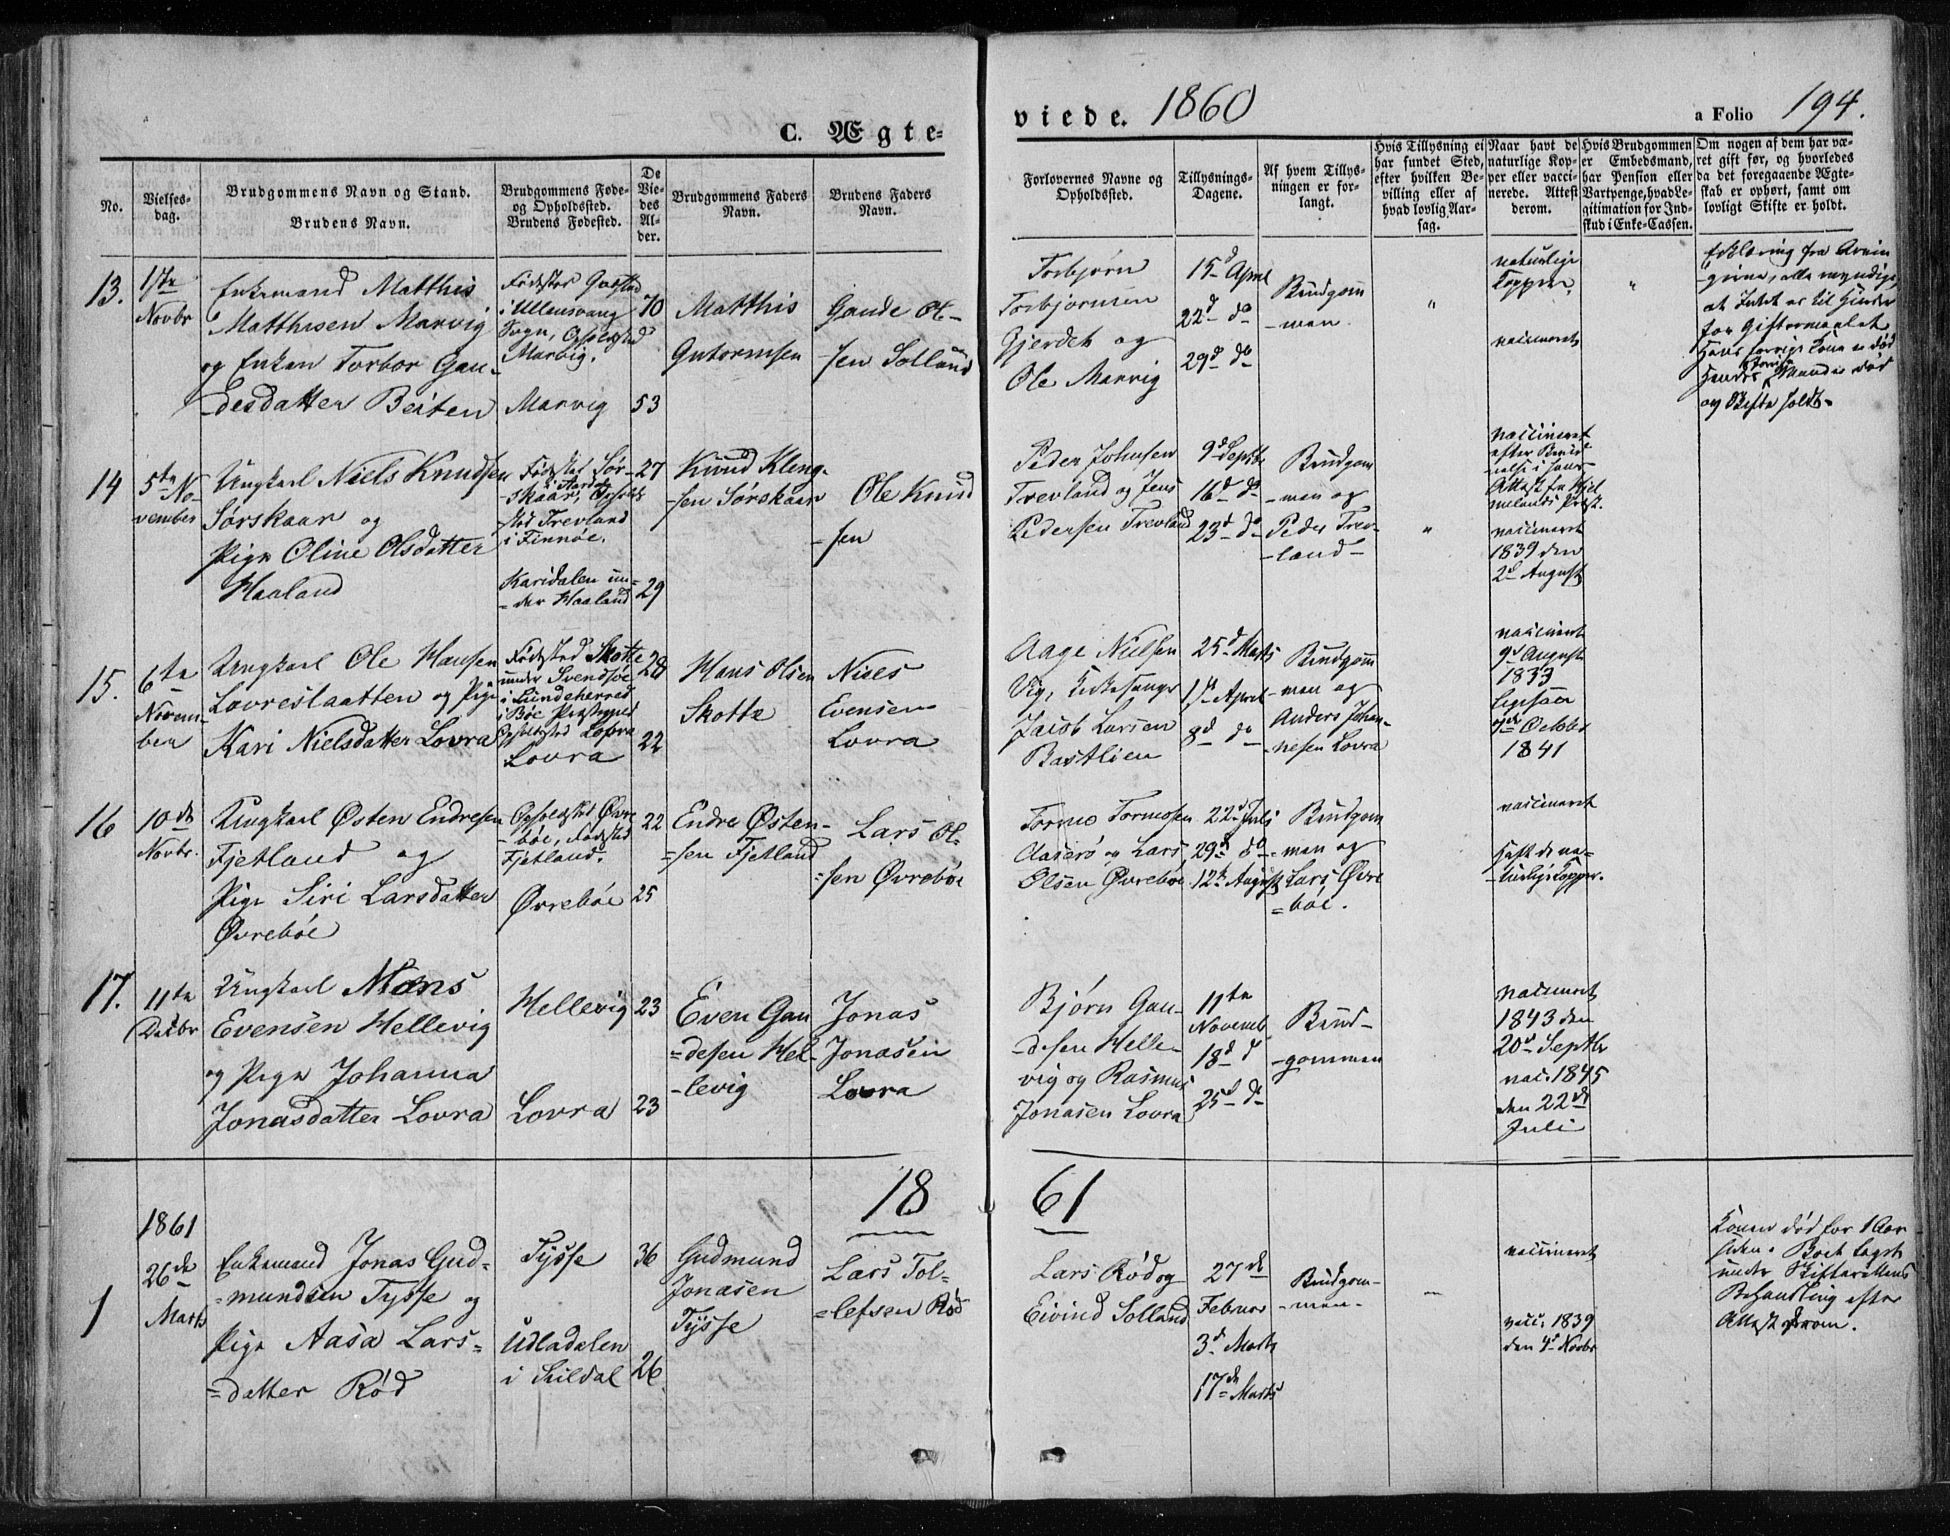 C. Ægte-
viede. 1860
a Folio 194.
No.
Vielses-
dag.
Brudgommens Navn og Stand.
Brudens Navn.
Brudgommens Føde-
og Opholdssted.
Brudens Fødested.
De
Vie-
des
Al-
der.
Brudgommens Faders
Navn.
Brudens Faders
Navn.
Forlovernes Navne og
Opholdssted.
Tillysnings-
Dagene.
Af hvem Tillys-
ningen er for-
langt.
Hvis Tillysning ei
har fundet Sted,
efter hvilken Be-
villing eller af
hvad lovlig Aar-
sag.
Naar havt de
naturlige Kop-
per eller vacci-
nerede. Attest
derom.
Hvis Brudgommen
er Embedsmand,
har Pension eller
Vartpenge, hvad Le-
gitimation for Ind-
skud i Enke-Cassen.
Om nogen af dem har væ-
ret gift før, og hvorledes
da det foregaaende Ægte-
skab er ophørt, samt om
lovligt Skifte er holdt.
13.
1ste
Novbr
Enkemand Matthis
Matthisen Marvig
og Enken Torbor Gau-
desdatter Beiten
Fødested
i Ullensvang
Sogn, Opholdssted
Marvig.
Marvig
70
53
Matthis
Gutormsen
Gaude Ol-
sen Solland
Torbjørn
Torbjørnsen
Gjerdet og
Ole Marvig
15d April
22d do
29d do
Brudgom
-men
"
naturlige
Kopper
vaccineret
"
Erklæring fra Arvin
gerne, alle myndige,
at Intet er til Hinder
for Giftermaalet
Hans forrige Kone er død
Hendes forrige Mand er død
og Skifte holdt-
14
5te No-
vember
Ungkarl Niels Knudsen
Sørskaar og
Pige Oline Olsdatter
Haaland
Fødested Sør-
skaar, i Aardal Opholds
sted Trevland
i Finnøe.
Karidalen un-
=der Haaland
27
29
Knud Kleng-
sen Sørskaar
Ole Knud
-sen
Peder Johnsen
Trevland og Jens
Pedersen Trevland
9d Septbr
16d do
23d do
Brudgom
-men og
Peder Trev-
-land-
"
vaccineret
efter
Attest fra Hjel
melands Præst.
vaccineret
1839 den
2d August
15.
6te
Novem-
ber
Ungkarl Ole Hansen
Lovreslaatten og Pige
Kari Nielsdatter Lovra
Fødested Skotte
under Svendsøe
i Lundeherred
i Bøe Præstegjeld
Opholdssted Lovra
Lovra
28
22
Hans Olsen
Skotte
Niels
Evensen
Lovra
Aage Nielsen
Vig, Kirkesanger
Jacob Larsen
Bastlien
25d Marts
1ste April
8d do
Brudgom
-men og
Anders Johan-
-nesen Lovra
vaccineret
9d August
1833
Ligesaa
October
1841
16
10de
Novbr.
Ungkarl Østen Endresen
Fjetland og
Pige Siri Larsdatter
Øvrebøe
Opholdssted Øvre
-bøe, Fødested
Fjetland.
Øvrebøe
22
25
Endre Østen-
=sen Fjetland
Lars Ol-
-sen Øvrebøe
Tormo Tormosen
Aaserø og Lars
Olsen Øvrebøe
22d Juli
29d do
12te August
Brudgom
-men og
Lars Øvre
=bøe.
vaccineret
Haft de na-
-turlige Kopper.
17.
11te
Decbr
Ungkarl Mons
Evensen Hellevig
og Pige Johanna
Jonasdatter Lovra
Hellevig
Lovra
23
23
Even Gau
=desen Hel-
-levig
Jonas
Jonasen
Lovra
Bjørn Gau-
-desen Helle-
vig og Rasmus
Jonasen Lovra
11te
Novemb.
18d d
25d do
Brud-
-gommen
vaccineret
1843 den
20d Septbr
vac. 1845
den 22de
Juli
18 61
1861
1
26de
Marts
Enkemand Jonas Gud-
=mundsen Tysse og
Pige Aasa Lars-
=datter Rød
Tysse
Udladalen
i Suldal
36
26
Gudmund
Jonasen
Tysse
Lars Tol-
=lefsen Rød
Lars Rød og
Eivind Solland
27de
Februar
3d Marts
17de Marts
Brudgom-
-men-
-
vaccineret
vacc. 1839
den 4d Novbr
Konen død for 1 Aar
siden. Boet tagit
under Skifterettens
Behandling efter
Attest derom.